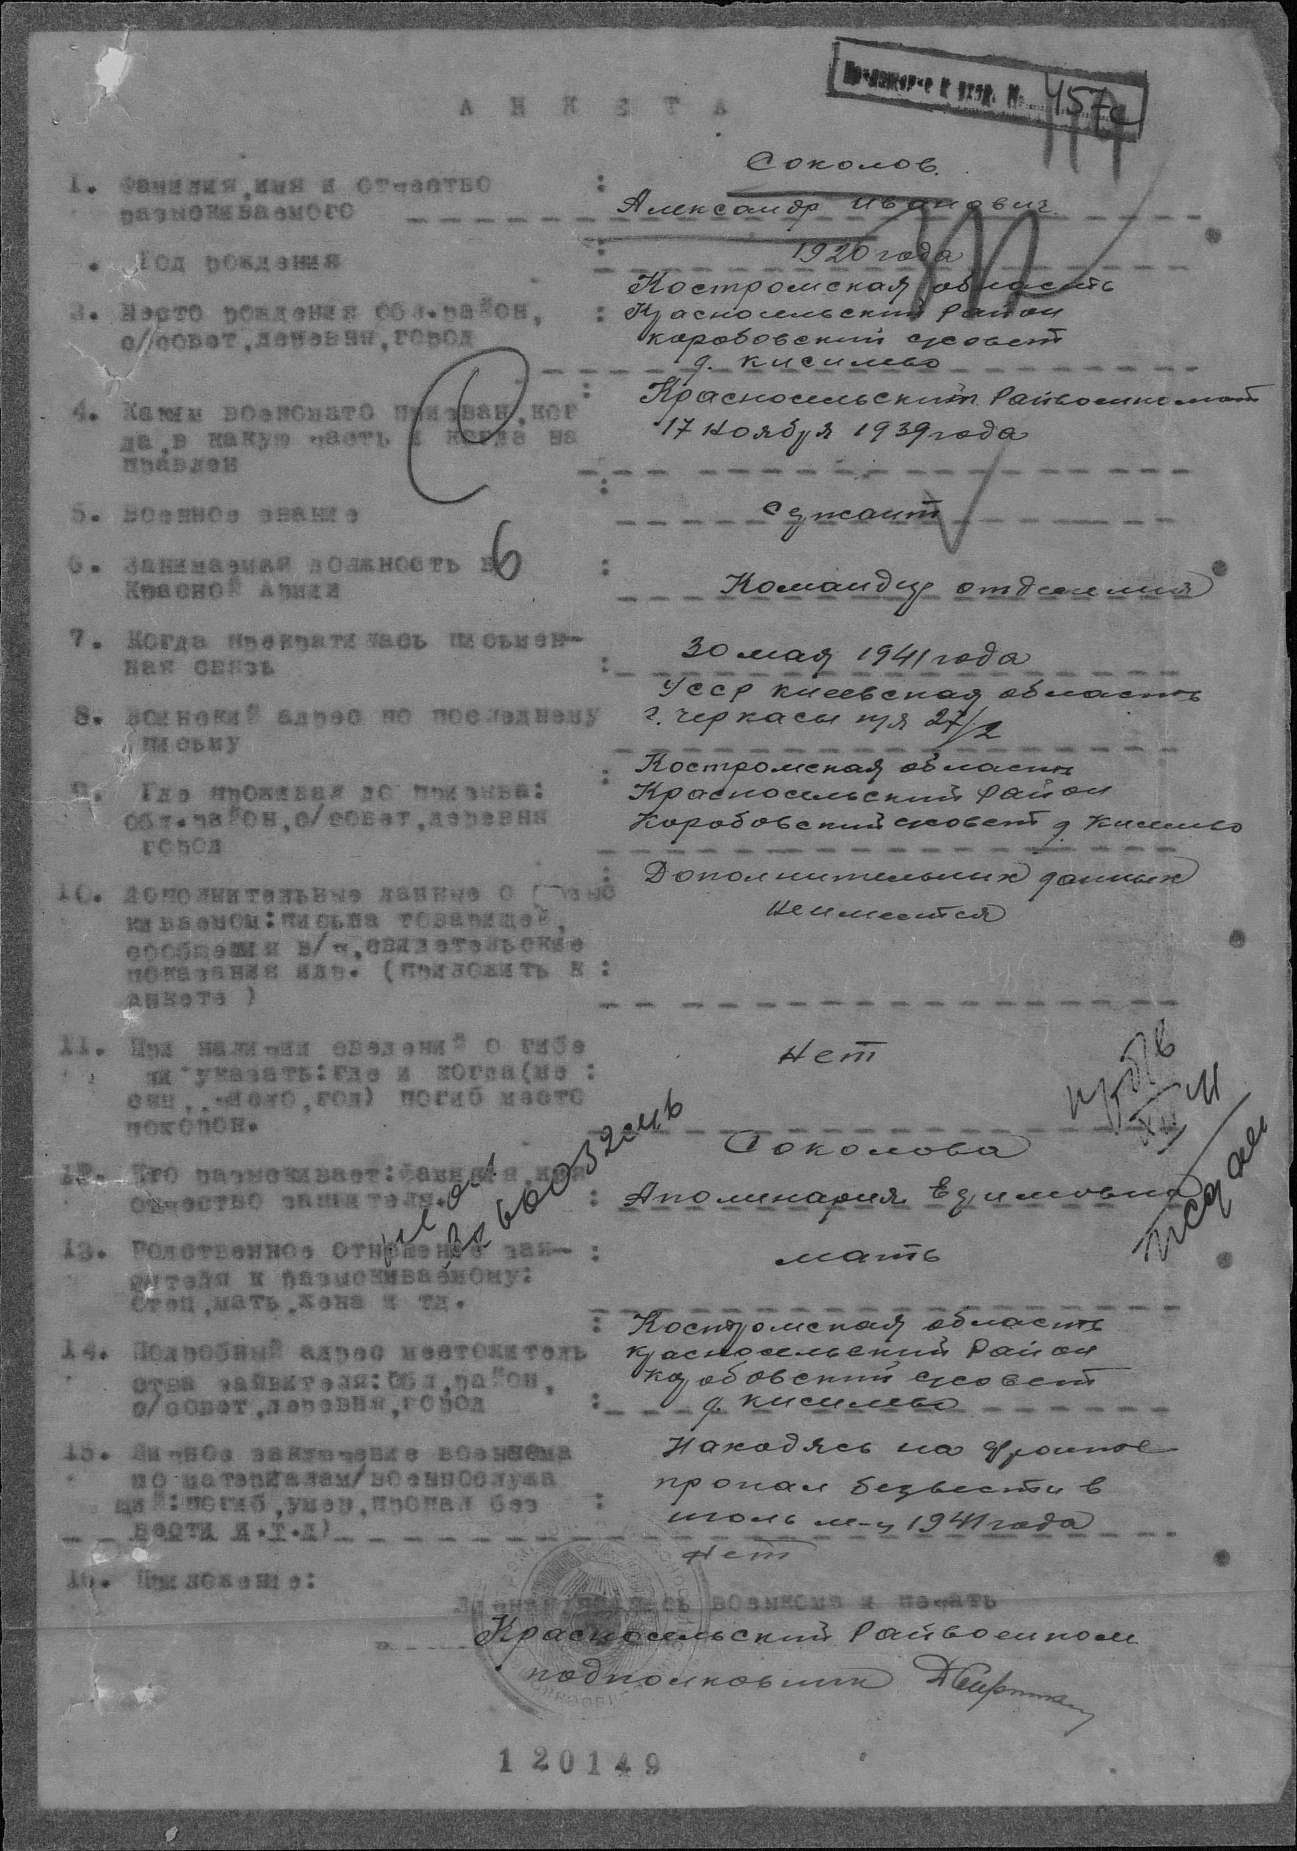 АНКЕТА
Приложение к вход. № 457с
1. Фамилия, имя и отчество : Соколов
разыскиваемого Александр Иванович
Год рождения : 1920 года
3. Место рождения обл. район, : Костромская область
с/совет, деревня, город Красносельский Район
каробовский с/совет
д. кисилево
4. Каким военкомато призван, ког : Красносельский Райвоенкомат
да, в какую часть и когда на 17 ноября 1939 года
правлен
5. Военное звание : Сержант
6. Занимаемая должность в : Командир отделения
Красной Армии
6
7. Когда прекратилась письмен-
ная связь : 30 мая 1941 года
8. Воинский адрес по последнему УССР киевская область
письму г. Черкасы п/я 27/2
9. Где проживал до призыва: : Костромская область
обл. район, с/совет, деревня Красносельский Район
город Каробовский с/совет д. Кисилево
10. Дополнительные данные о разыс : Дополнительних данных
киваемом: письма товарищей, Неимеется
сообщения в/ч, свидетельские
показания идр. (приложить к :
анкете)
11. При наличии сведений о гибе Нет
ли указать: где и когда (ме :
сяц, число, год) погиб место
похорон.
12. Кто разыскивает: фамилия, имя Соколова
отчество заявителя. : Аполинария Ефимовна
13. Родственное отношение зая- : мать
вителя к разыскиваемому:
отец, мать, жена и тд.
14. Подробный адрес местожитель : Костромская область
ства заявителя: обл. район, красносельский Район
с/совет, деревня, город : Каробовский с/совет
д. кисилево
15. Личное заключение военкома Находясь на фронте
по материалам/военнослужа пропал безвести в
щий: погиб, умер, пропал без : июль м-ц 1941 года
вести и.т.д)
16. Приложение: Нет
подпись военкома и печать
Красносельский Райвоенком
подполковник
120149